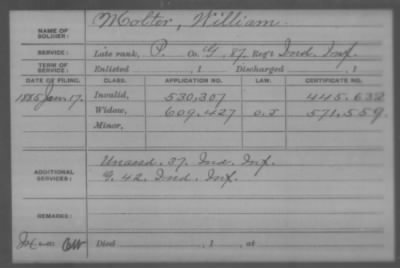 NAME OF SOLDIER: Molter, William.
SERVICE: Late rank, P. Co. G, 87. Reg't Ind. Inf.
TERM OF SERVICE: Enlisted , 1 Discharged , 1
DATE OF FILING. CLASS. APPLICATION NO. LAW. CERTIFICATE NO.
1885 Jan. 17. Invalid, 530,307 445.632
Widow, 609.427 571.559
Minor,
ADDITIONAL SERVICES: Unassd. 37. Ind. Inf.
G. 42. Ind. Inf.
REMARKS:
Died , 1 , at